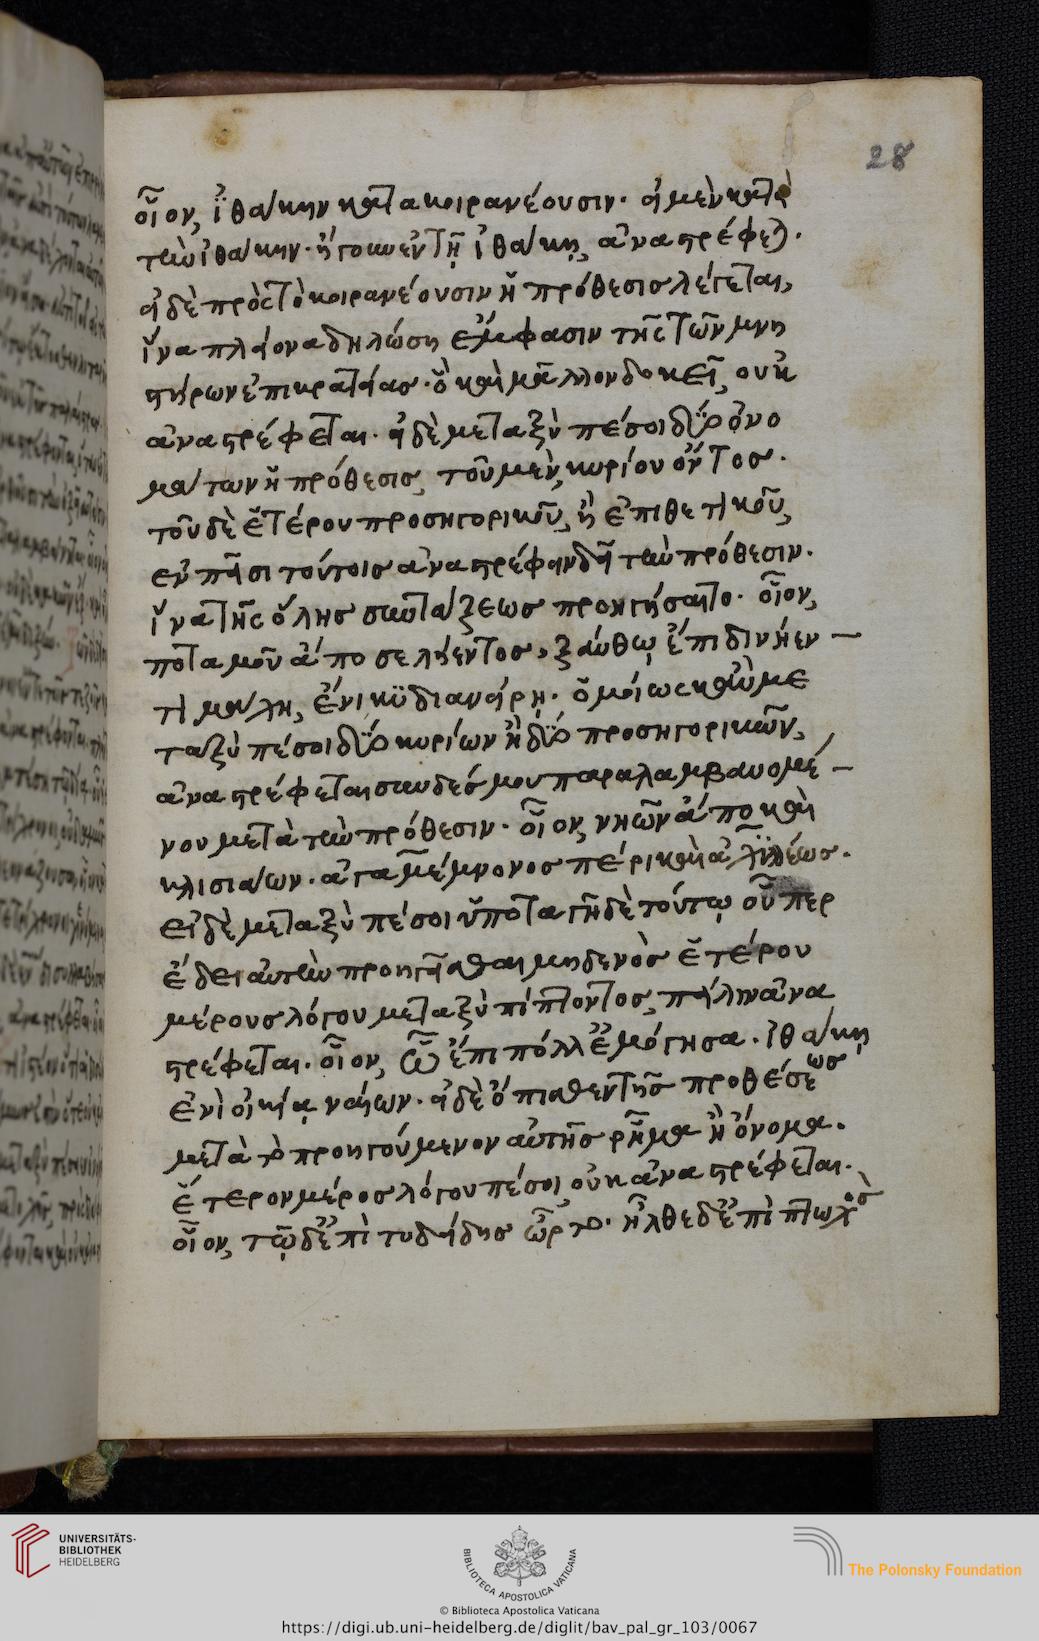 28
οἷον, ἰθάκην κάτα κοιρανέουσιν· εἰ μὲν κατὰ
τὴν ἰθάκην· ἤγουν ἐν τῇ ἰθάκῃ, ἀναστρέφεται·
εἰ δὲ πρὸς τὸ κοιρανέουσιν ἡ πρόθεσις λέγεται,
ἵνα πλείονα δηλώση ἔμφασιν τῆς τῶν μνη
στήρων ἐπικρατείας· ὃ καὶ μᾶλλον δοκεῖ, οὐκ
ἀναστρέφεται· εἰ δὲ μεταξὺ πέσοι δύο ὀνο
μάτων ἡ πρόθεσις, τοῦ μὲν, κυρίου ὄντος·
τοῦ δὲ ἑτέρου προσηγορικοῦ, ἢ ἐπιθετικοῦ,
ἐν πᾶσι τούτοις ἀναστρέφειν δεῖ τὴν πρόθεσιν·
ἵνα τῆς ὅλης συντάξεως προηγήσαιτο· οἷον,
ποταμοῦ ἄπο σελήεντος, ξάνθῳ ἔπι δινήεν
τι μάλῃ, ἔνι κυδιανείρῃ· ὁμοίως κἂν με
ταξὺ πέσοι δύο κυρίων ἢ δύο προσηγορικῶν,
ἀναστρέφεται συνδέσμου παραλαμβανομέ
νου μετὰ τὴν πρόθεσιν· οἷον, νηῶν ἄπο καὶ
κλισιάων· ἀγαμέμνονος πέρι καὶ ἀχιλλέως·
εἰ δὲ μεταξὺ πέσοι ὑποταγῆ δὲ τούτῳ οὗπερ
ἔδει αὐτὴν προηγεῖσθαι μηδενὸς ἑτέρου
μέρους λόγου μεταξὺ πίπτοντος, πάλιν ἀνα
στρέφεται· οἷον, ᾧ ἔπι πόλλ' ἐμόγησα· ἰθάκῃ
ἐνὶ οἰκία ναίων· εἰ δὲ ὄπισθεν τῆς προθέσεως
μετὰ τὸ προηγούμενον αὐτῆς ῥῆμα ἢ ὄνομα·
ἕτερον μέρος λόγου πέσοι, οὐκ ἀναστρέφεται·
οἷον, τῷ δ' ἐπὶ τυδείδης ὦρτο· ἦλθε δ' ἐπὶ πτωχὸς
UNIVERSITÄTS-
BIBLIOTHEK
HEIDELBERG
BIBLIOTECA APOSTOLICA VATICANA
The Polonsky Foundation
© Biblioteca Apostolica Vaticana
https://digi.ub.uni-heidelberg.de/diglit/bav_pal_gr_103/0067